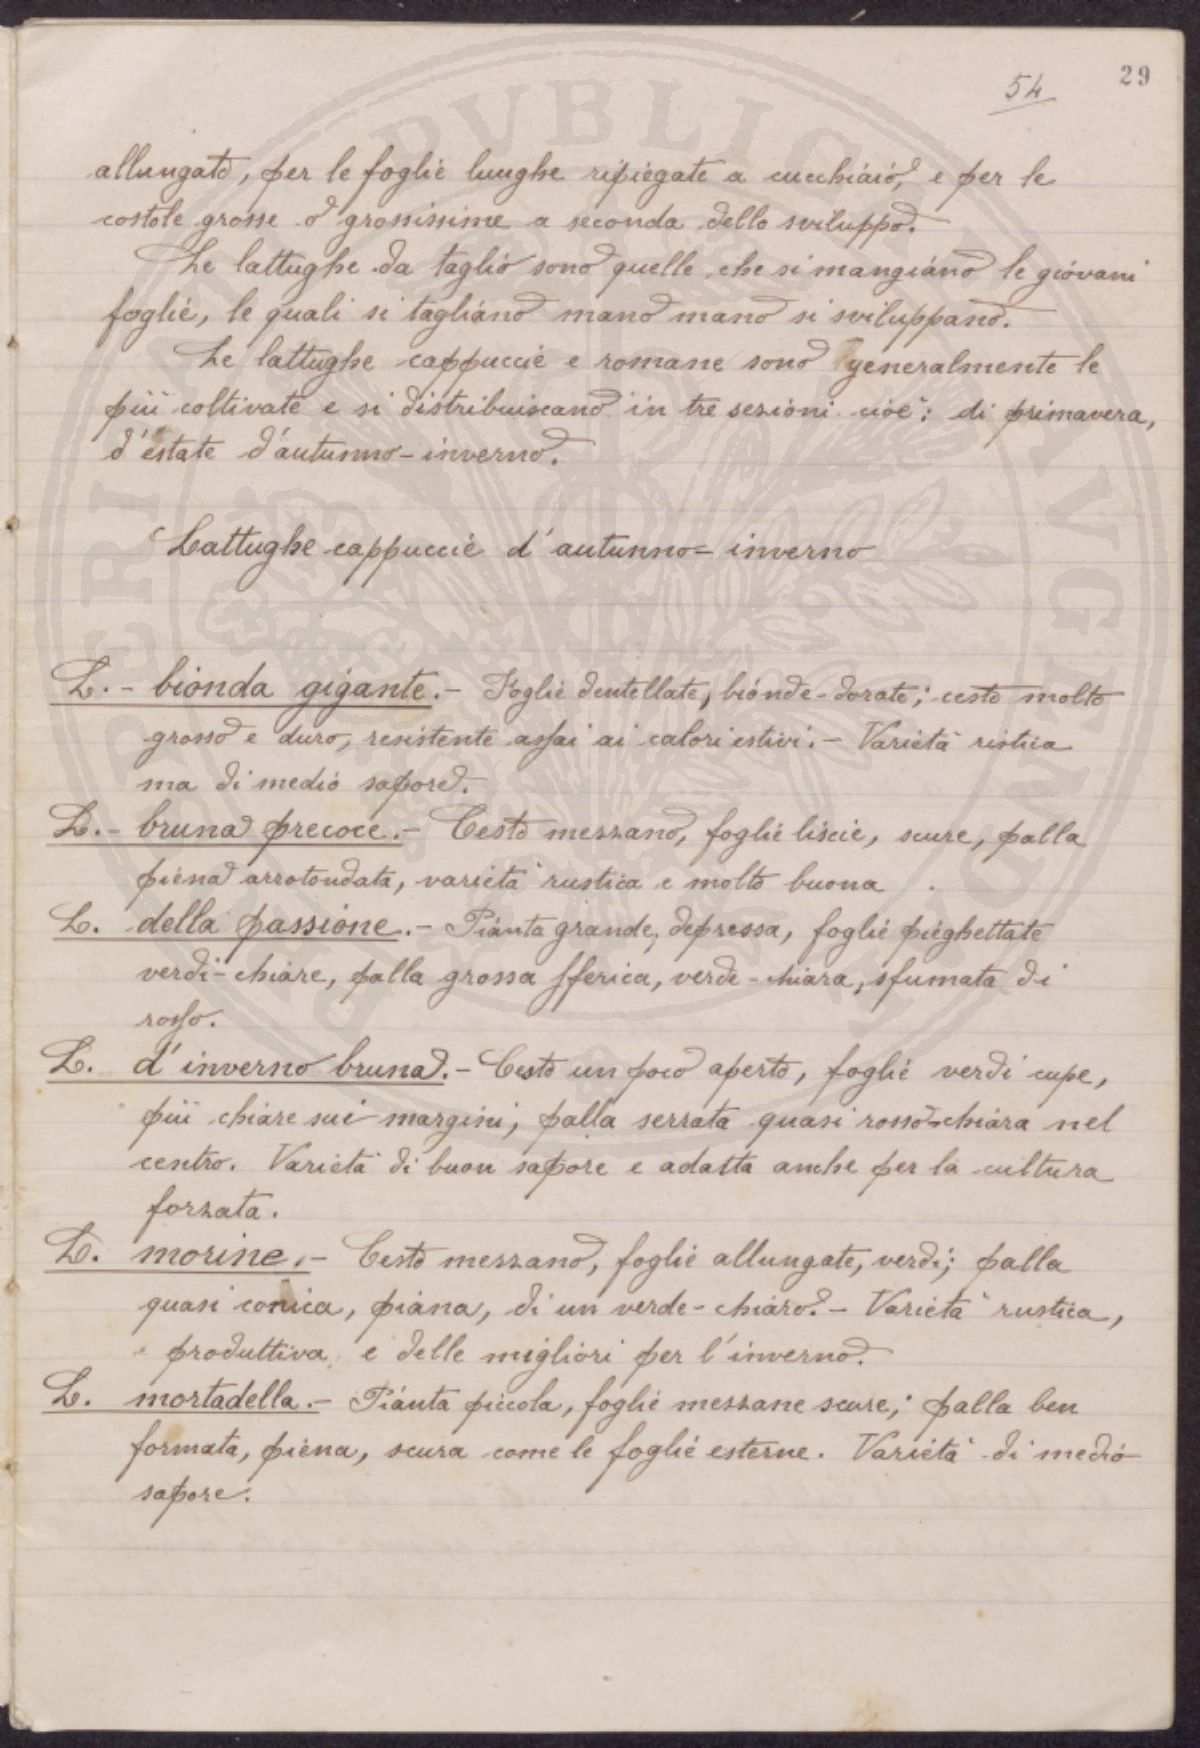 29
54
allungato, per le foglie lunghe ripiegate a cucchiaio, e per le
costole grosse o grossissime a seconda dello sviluppo.
Le lattughe da taglio sono quelle che si mangiano le giovani
foglie, le quali si tagliano mano mano si sviluppano.
Le lattughe cappuccie e romane sono generalmente le
più coltivate e si distribuiscano in tre sezioni cioè: di primavera,
d'estate d'autunno-inverno.
Lattughe cappuccie d'autunno=inverno
L.- bionda gigante.- Foglie dentellate, bionde-dorate; cesto molto
grosso e duro, resistente assai ai calori estivi.- Varietà ristica
ma di medio sapore.
L.- bruna precoce.- Cesto mezzano, foglie liscie, scure, palla
piena arrotondata, varietà rustica e molto buona.
L. della passione.- Pianta grande, depressa, foglie pieghettate
verdi-chiare, palla grossa sferica, verde-chiara, sfumata di
rosso.
L. d'inverno bruna.- Cesto un poco aperto, foglie verdi cupe,
più chiare sui margini, palla serrata quasi rosso-chiara nel
centro. Varietà di buon sapore e adatta anche per la cultura
forzata.
L. morine.- Cesto mezzano, foglie allungate, verdi; palla
quasi conica, piana, di un verde-chiaro.- Varietà rustica,
produttiva e delle migliori per l'inverno.
L. mortadella.- Pianta piccola, foglie mezzane scure; palla ben
formata, piena, scura come le foglie esterne. Varietà di medio
sapore.